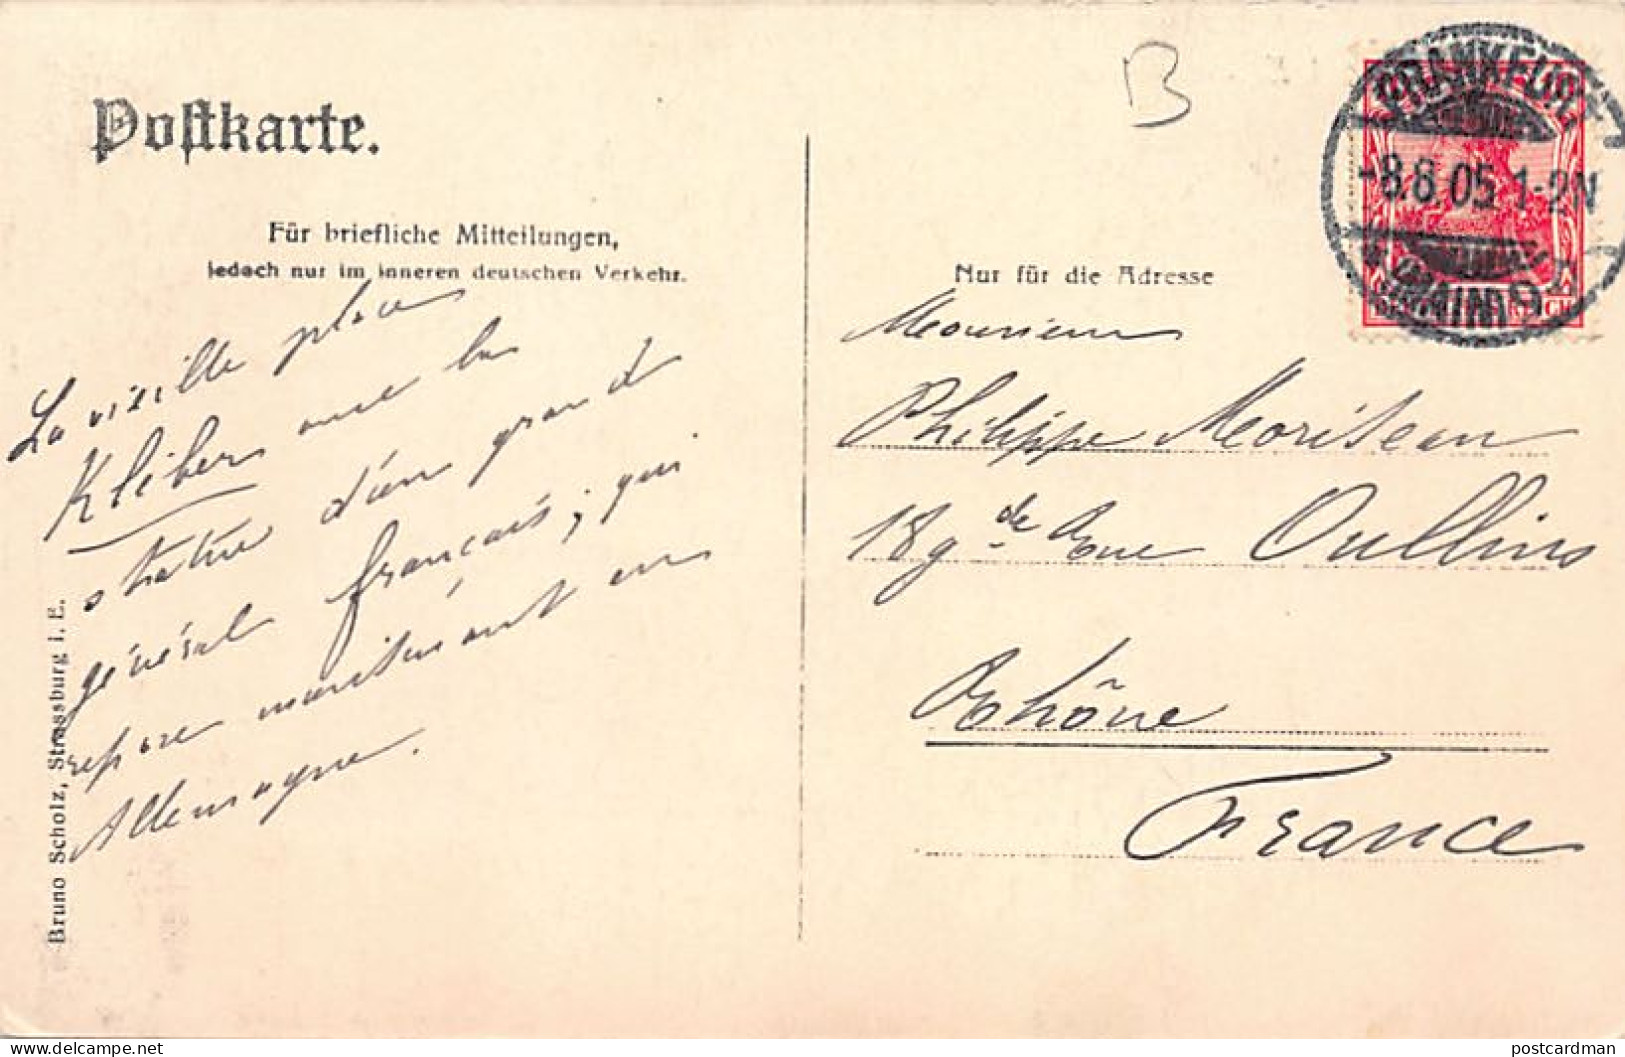 B
FRANKFURT
-8.8.05.1-2N
(MAIN) 9
REICH
Postkarte.
Für briefliche Mitteilungen,
jedoch nur im inneren deutschen Verkehr.
La vieille place
Kléber avec la
statue d'un grand
général français; qui
repose maintenant en
Allemagne.
Bruno Scholz, Strassburg i. E.
Nur für die Adresse
Monsieur
Philippe Moriseau
18 gde Rue Oullins
Rhône
France
delcampe.net
postcardman